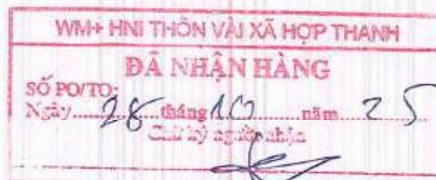 WM+ HNI THÔN VẢI XÃ HỢP THANH
ĐÃ NHẬN HÀNG
SỐ PO/TO:
Ngày.....28.....tháng 10.....năm 25
Chữ ký người nhận